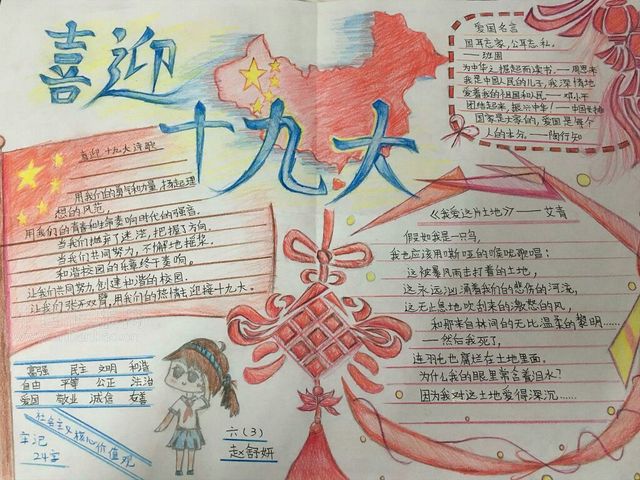 喜迎
十九大
喜迎十九大诗歌
用我们的勇气和力量,扬起理
想的风范,
用我们的青春和生命奏响时代的强音.
当我们抛弃了迷茫,把握了方向.
当我们共同努力,不懈地摇桨.
和谐校园的乐章终于奏响.
让我们共同努力,创建和谐的校园.
让我们张开双臂,用我们的热情去迎接十九大.
富强 民主 文明 和谐
自由 平等 公正 法治
爱国 敬业 诚信 友善
社会主义核心价值观
牢记
24字
六(3)
赵舒妍
爱国名言
国耳忘家,公耳忘私.
——班固
为中华之掘起而读书.——周恩来
我是中国人民的儿子,我深情地
爱着我的祖国和人民——邓小平
团结起来,振兴中华!——
国家是大家的,爱国是每个
人的本分.——陶行知
《我爱这片土地》——艾青
假如我是一只鸟,
我也应该用嘶哑的喉咙歌唱:
这被暴风雨击打着的土地,
这永远汹涌着我们的悲伤的河流,
这无止息地吹刮来的激怒的风,
和那来自林间的无比温柔的黎明……
——然后我死了,
连羽毛也腐烂在土地里面.
为什么我的眼里常含着泪水?
因为我对这土地爱得深沉……